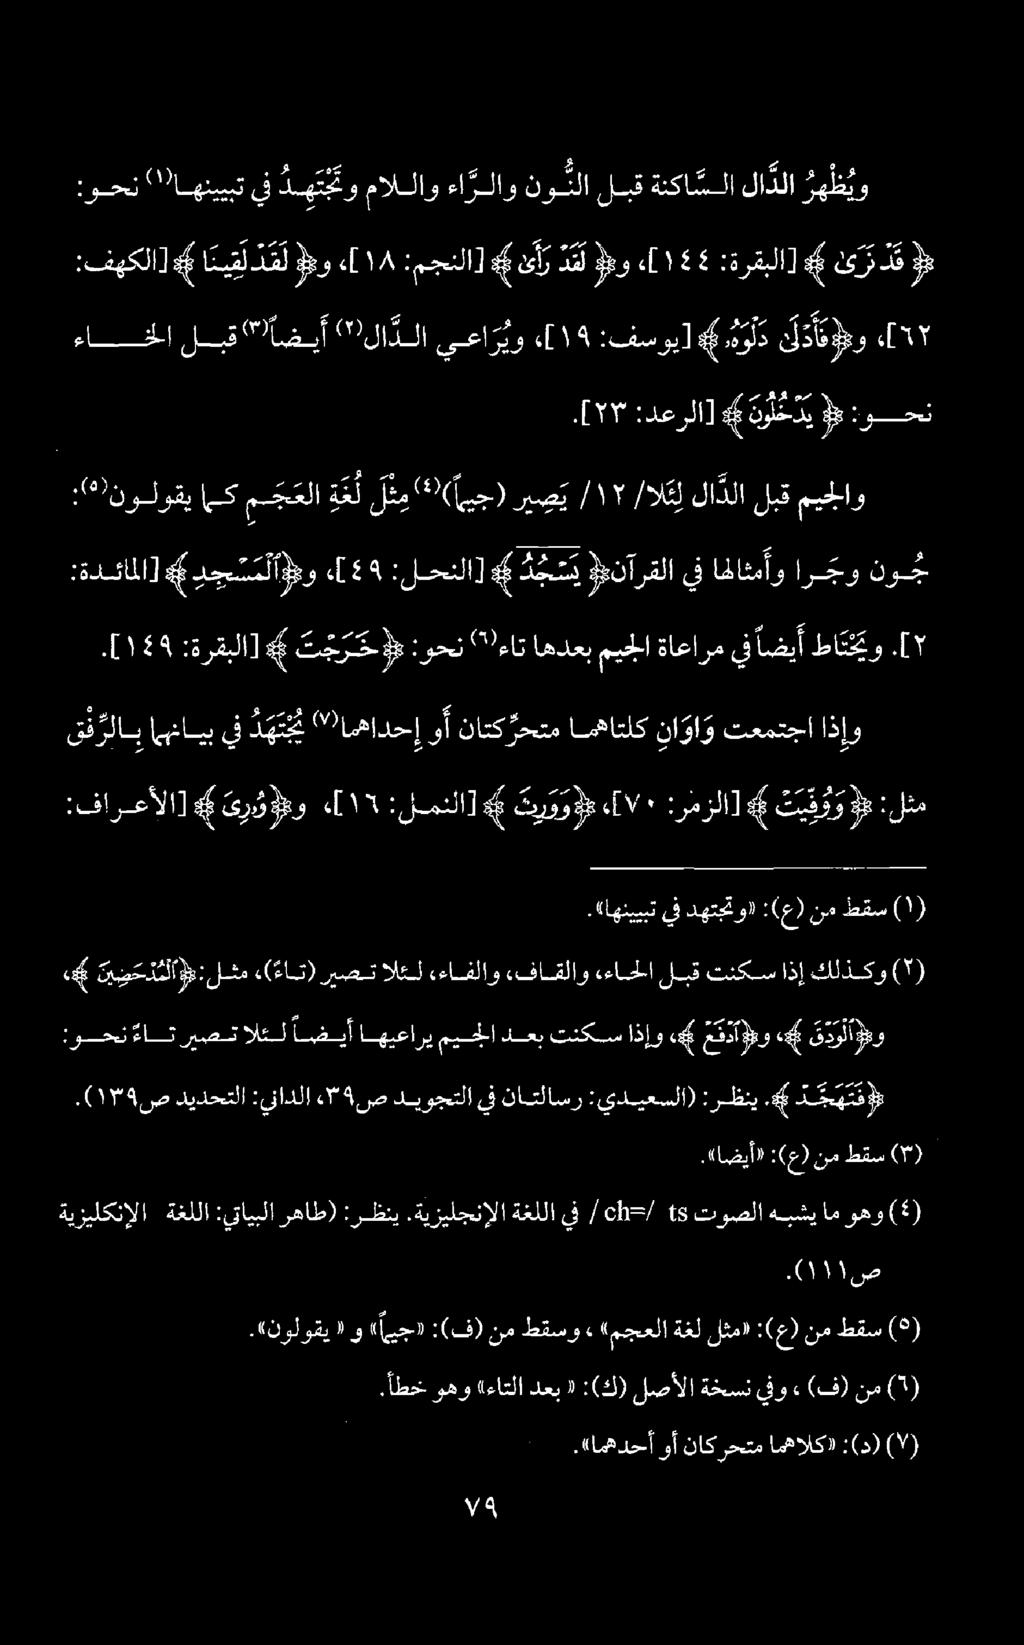 ويُظهرُ الدَّال السَّاكنة قبل النُّون والرَّاء واللام وتَجْتَهِدُ في تبيينها(١) نحو:
﴿قَدْ نَرَىٰ﴾ [البقرة: ١٤٤]، و﴿لَقَدْ رَأَىٰ﴾ [النجم: ١٨]، و﴿لَقَدْ لَقِينَا﴾ [الكهف:
٦٢]، و﴿فَأَدْلَىٰ دَلْوَهُۥ﴾ [يوسف: ١٩]، ويُرَاعي الدَّال(٢) أيضاً(٣) قبل الخاء
نحو: ﴿يَدْخُلُونَ﴾ [الرعد: ٢٣].
والجيم قبل الدَّال لِئَلا/ ١٢/ يَصِير (جيماً)(٤) مثْلَ لُغَةِ العَجَم كما يقولون(٥):
جُون وجَرا وأمثالها في القرآن﴿يَسْجُدُ﴾ [النحل: ٤٩]، و﴿ٱلْمَسْجِدِ﴾ [المائدة:
٢]. ويَحْتَاط أيضاً في مراعاة الجيم بعدها تاء(٦) نحو: ﴿خَرَجْتَ﴾ [البقرة: ١٤٩].
وإذا اجتمعت وَاوَانِ كلتاهما متحرِّكتان أو إحداهما(٧) يُجْتَهَدُ في بيانهما بالرِّفْق
مثل: ﴿وَوُفِّيَتْ﴾ [الزمر: ٧٠]، ﴿وَوَرِثَ﴾ [النمل: ١٦]، و﴿وُۥرِىَ﴾ [الأعراف:
(١) سقط من (ع): «وتجتهد في تبيينها».
(٢) وكذلك إذا سكنت قبل الحاء، والقاف، والفاء، لئلا تصير (تاءً)، مثل:﴿ٱلْمُدْحَضِينَ﴾،
و﴿ٱلْوَدْقَ﴾، و﴿ٱدْفَعْ﴾، وإذا سكنت بعد الجيم يراعيها أيضاً لئلا تصير تاءً نحو:
﴿فَتَهَجَّدْ﴾. ينظر: (السعيدي: رسالتان في التجويد ص٣٩، الداني: التحديد ص١٣٩).
(٣) سقط من (ع): «أيضا».
(٤) وهو ما يشبه الصوت ch=/ ts/ في اللغة الإنجليزية. ينظر: (طاهر البياتي: اللغة الإنكليزية
ص١١١).
(٥) سقط من (ع): «مثل لغة العجم»، وسقط من (ف): «جيماً» و «يقولون».
(٦) من (ف)، وفي نسخة الأصل (ك): «بعد التاء» وهو خطأ.
(٧) (د): «كلاهما متحركان أو أحدهما».
٧٩